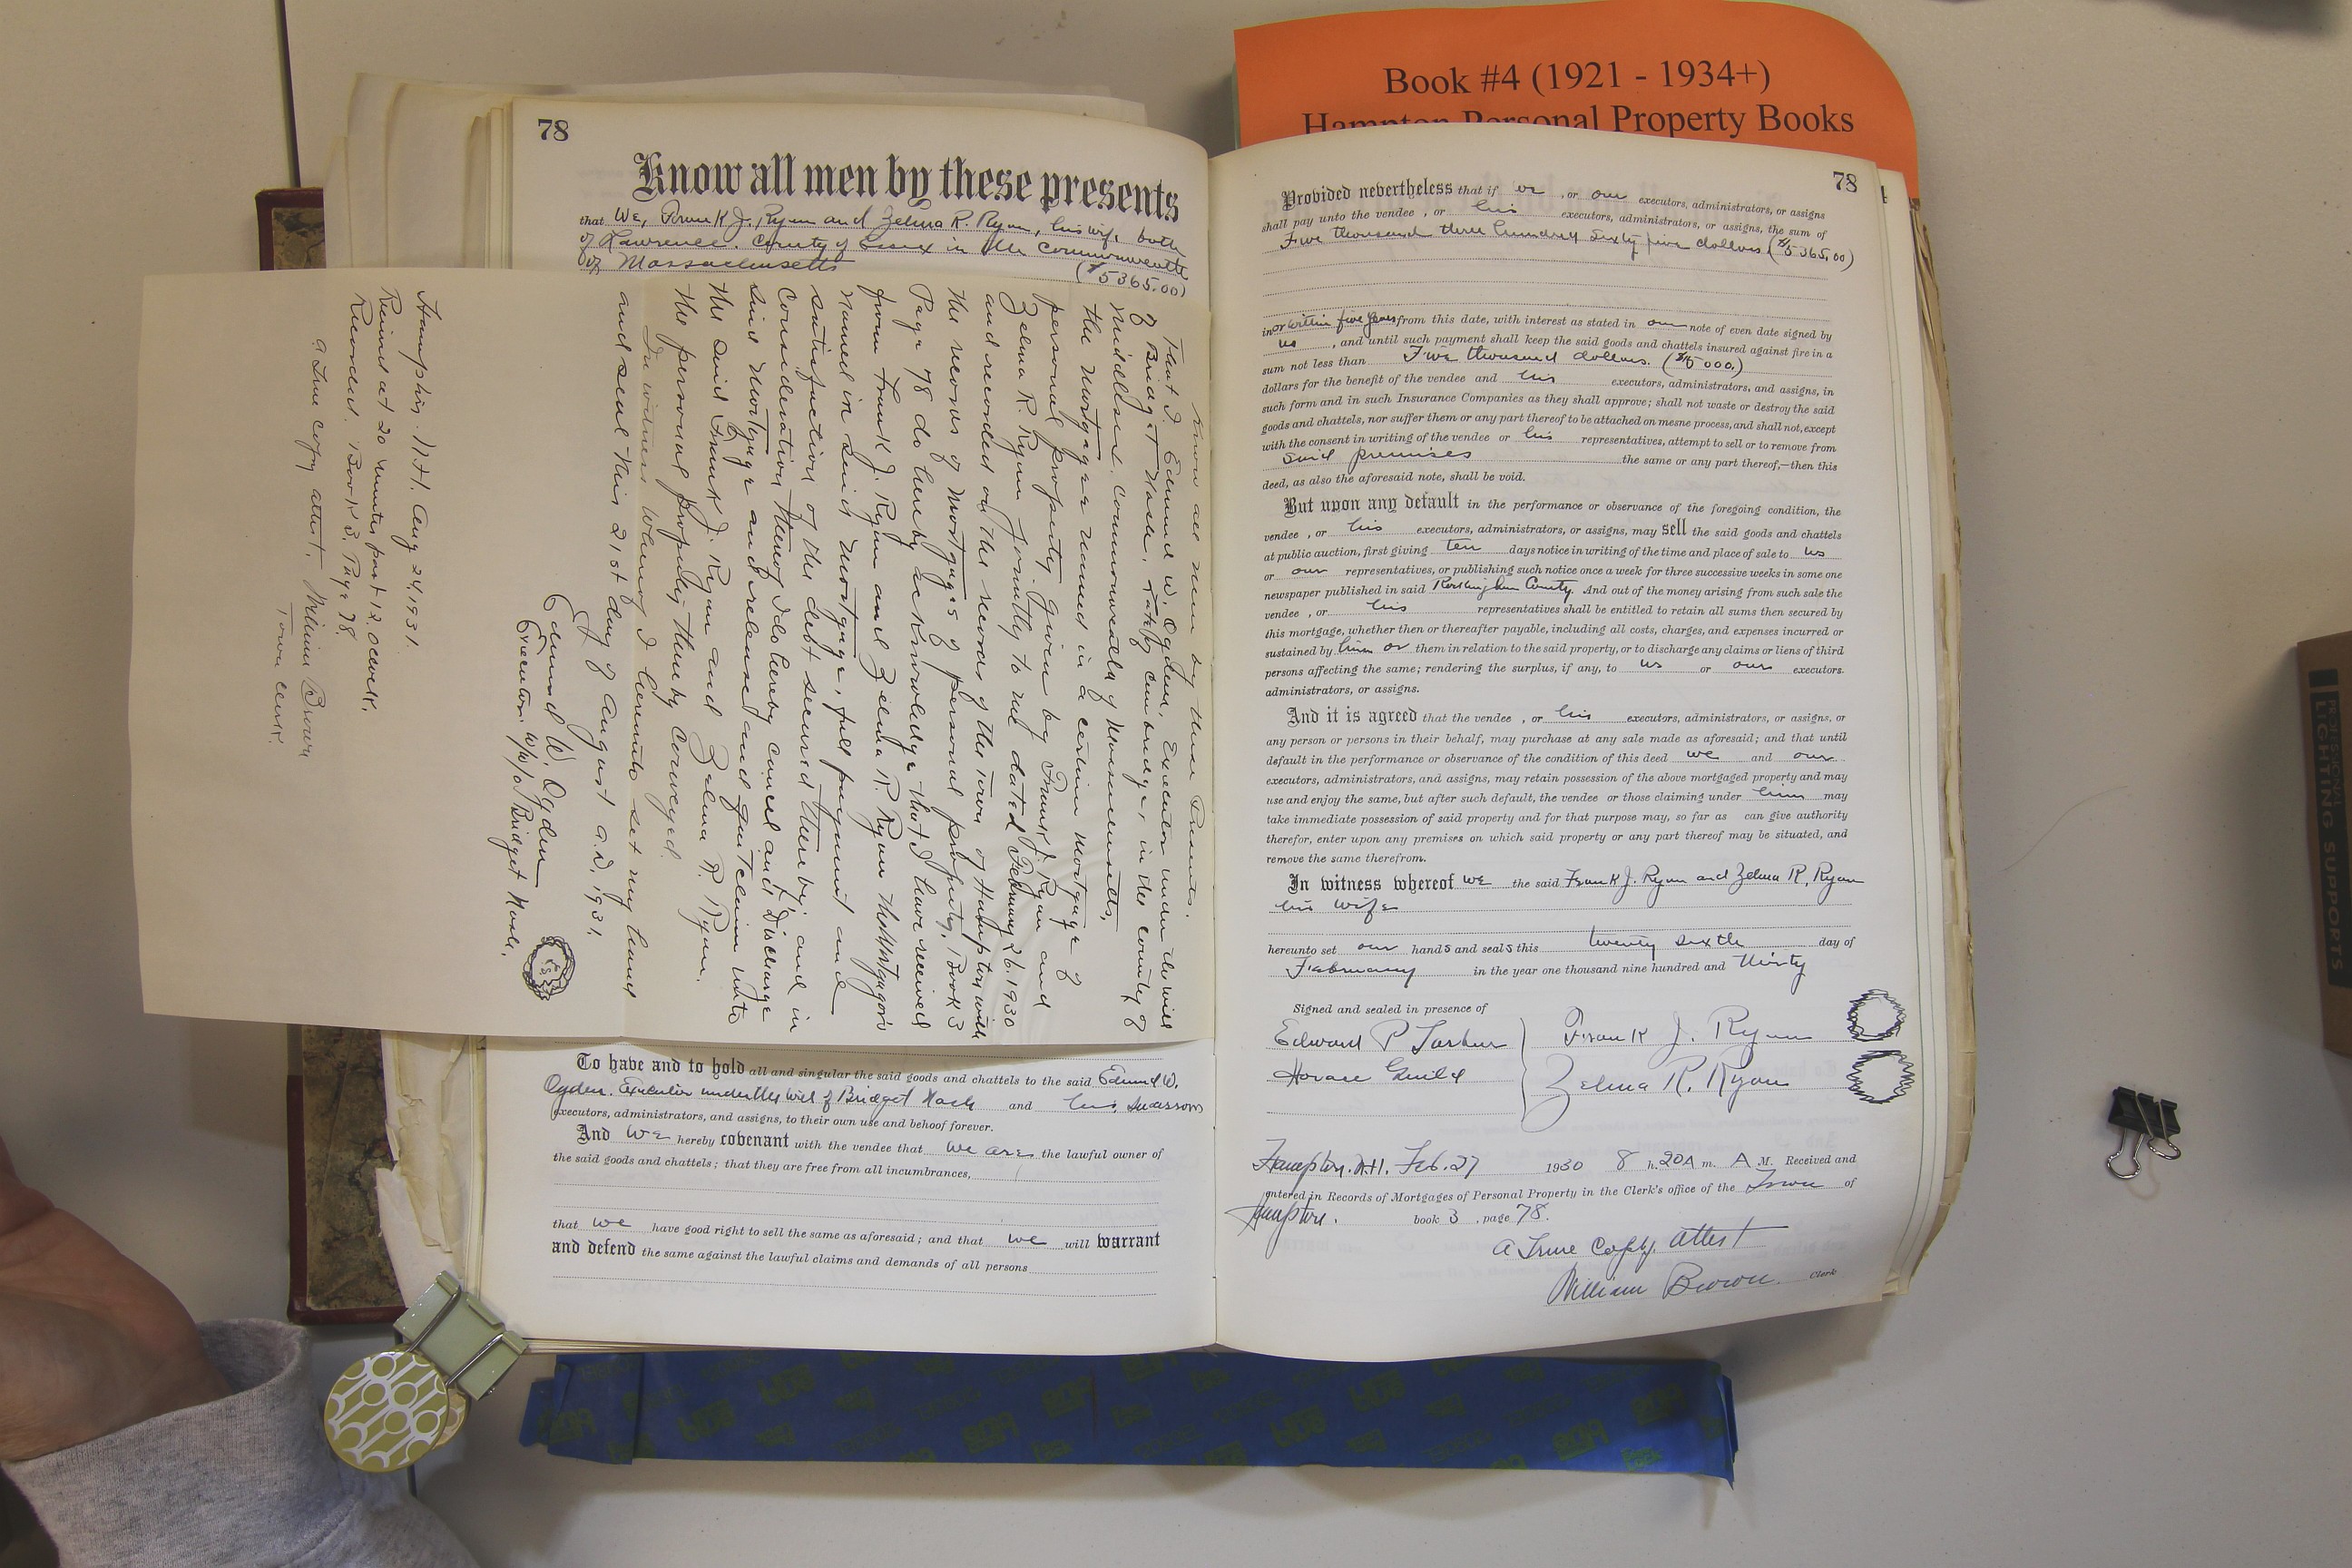 Book #4 (1921 - 1934+)
Hampton Personal Property Books
78
Know all men by these presents
that We, Frank J. Ryan and Zelma R. Ryan, his wife both
of Lawrence. County of Essex in the Commonwealth
of Massachusetts
($5365.00)
Know all men by these Presents.
That I. Edmund W. Ogden, Executor under the will
of Bridget Nash, late of Cambridge, in the County of
Middlesex, Commonwealth of Massachusetts,
the mortgagee named in a certain mortgage of
personal property given by Frank J. Ryan and
Zelma R. Ryan jointly to me dated February 26. 1930
and recorded on the records of the town of Hampton with
the records of Mortgages of personal property, Book 3
Page 78 do hereby acknowledge that I have received
from Frank J. Ryan and Zelma R. Ryan the Mortgagors
named in said mortgage, full payment and
satisfaction of the debt secured thereby; and in
Consideration thereof I do hereby cancel and Discharge
said mortgage and release and quitclaim unto
the said Frank J. Ryan and Zelma R. Ryan,
the personal property thereby conveyed.
In witness whereof I hereunto set my hand
and seal this 21st day of August A.D. 1931.
Edmund W. Ogden
Executor w/o Bridget Nash.
L.S.
Hampton. N.H. Aug 24, 1931.
Received at 20 minutes past 12. Oclock.
Recorded. Book 3. Page 78.
A True Copy attest, William Brown
Town Clerk.
To have and to hold all and singular the said goods and chattels to the said Edmund W.
Ogden. Executor under the will of Bridget Nash and his successors
executors, administrators, and assigns, to their own use and behoof forever.
And We hereby covenant with the vendee that we are the lawful owner of
the said goods and chattels; that they are free from all incumbrances,
that we have good right to sell the same as aforesaid; and that we will warrant
and defend the same against the lawful claims and demands of all persons
78
Provided nevertheless that if we , or our executors, administrators, or assigns
shall pay unto the vendee , or his executors, administrators, or assigns, the sum of
Five thousand three hundred sixty five dollars ($5365.00)
in or within five years from this date, with interest as stated in our note of even date signed by
us , and until such payment shall keep the said goods and chattels insured against fire in a
sum not less than Five thousand dollars. ($5000.)
dollars for the benefit of the vendee and his executors, administrators, and assigns, in
such form and in such Insurance Companies as they shall approve; shall not waste or destroy the said
goods and chattels, nor suffer them or any part thereof to be attached on mesne process, and shall not, except
with the consent in writing of the vendee or his representatives, attempt to sell or to remove from
said premises the same or any part thereof,—then this
deed, as also the aforesaid note, shall be void.
But upon any default in the performance or observance of the foregoing condition, the
vendee , or his executors, administrators, or assigns, may sell the said goods and chattels
at public auction, first giving ten days notice in writing of the time and place of sale to us
or our representatives, or publishing such notice once a week for three successive weeks in some one
newspaper published in said Rockingham County. And out of the money arising from such sale the
vendee , or his representatives shall be entitled to retain all sums then secured by
this mortgage, whether then or thereafter payable, including all costs, charges, and expenses incurred or
sustained by him or them in relation to the said property, or to discharge any claims or liens of third
persons affecting the same; rendering the surplus, if any, to us or our executors.
administrators, or assigns.
And it is agreed that the vendee , or his executors, administrators, or assigns, or
any person or persons in their behalf, may purchase at any sale made as aforesaid; and that until
default in the performance or observance of the condition of this deed we and our
executors, administrators, and assigns, may retain possession of the above mortgaged property and may
use and enjoy the same, but after such default, the vendee or those claiming under him may
take immediate possession of said property and for that purpose may, so far as can give authority
therefor, enter upon any premises on which said property or any part thereof may be situated, and
remove the same therefrom.
In witness whereof we the said Frank J. Ryan and Zelma R. Ryan
his wife
hereunto set our hands and seals this twenty sixth day of
February in the year one thousand nine hundred and thirty
Signed and sealed in presence of
Edward P Frank J. Ryan
Horace Guild Zelma R. Ryan
Hampton. N.H. Feb. 27 1930 8 h. 20 A m. A M. Received and
entered in Records of Mortgages of Personal Property in the Clerk's office of the Town of
Hampton. book 3 , page 78.
A True Copy. Attest
William Brown. Clerk
PROFESSIONAL
LIGHTING SUPPORTS